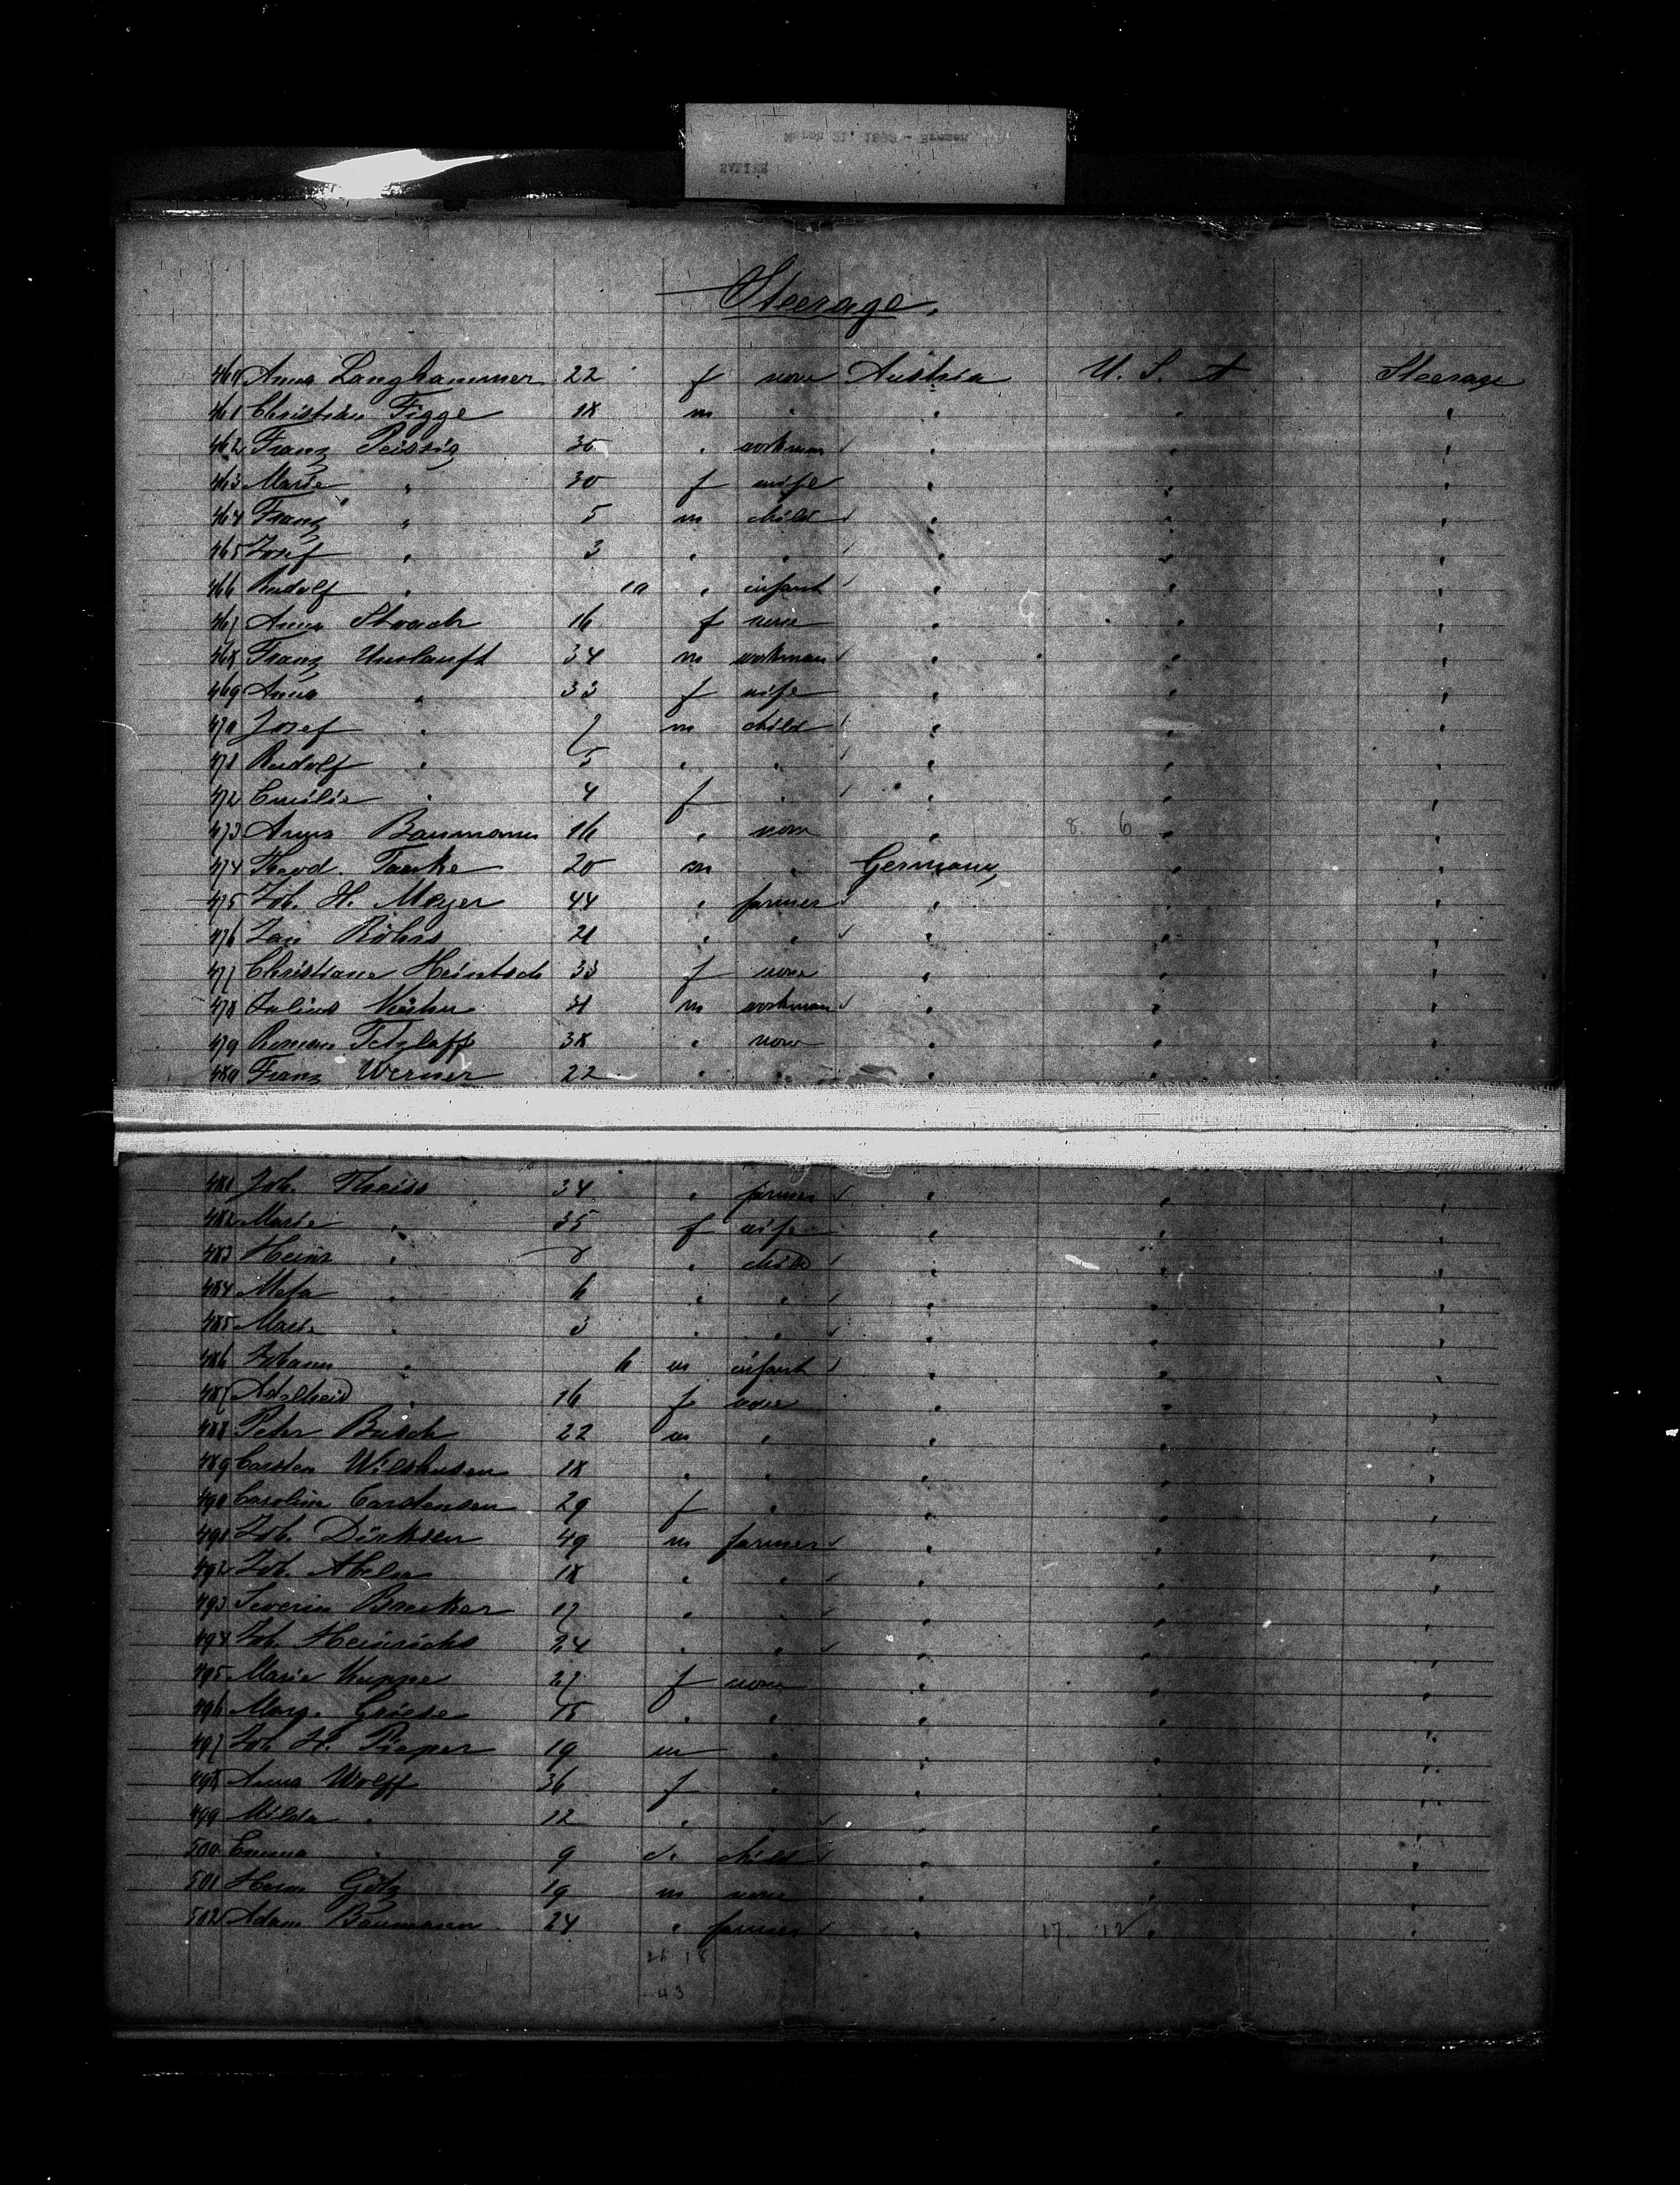 Steerage.
460 Anna Langhammer 22 f none Austria U. S. A Steerage
461 Christian Figge 18 m " " " "
462 Franz Peissig 36 " workman " " "
463 Marie " 30 f wife " " "
464 Franz " 5 m child " " "
465 Josef " 3 " " " " "
466 Rudolf " 10 " infant " " "
467 Anna 16 f none " " "
468 Franz Umlauft 34 m workman " " "
469 Anna " 33 f wife " " "
470 Josef " 7 m child " " "
471 Rudolf " 5 " " " " "
472 Emilie " 4 f " " " "
473 Anna Baumann 16 " none " 8 6 " "
474 Theod. Taake 20 m " Germany " "
475 Joh. H. Meyer 44 " farmer " " "
476 Jan Röhrs 21 " " " " "
477 Christiane Heintsch 33 f none " " "
478 Julius m workman " " "
479 Roman Tetzlaff 38 " none " " "
480 Franz Werner 22 " " " " "
481 Joh. Theiss 34 " farmer " " "
482 Marie " 35 f wife " " "
483 Heinr " 8 " child " " "
484 Meta " 6 " " " " "
485 Marie " 3 " " " " "
486 Johann " 6 m infant " " "
487 Adelheid " 16 f none " " "
488 Peter Busch 22 m " " " "
489 Carsten Wilshusen 18 " " " " "
490 Caroline Carstensen 29 f " " " "
491 Joh. Dirksen 49 m farmer " " "
492 Joh. Abels 18 " " " " "
493 Severin Brecker 17 " " " " "
494 Joh. Heinrichs 24 " " " " "
495 Marie Kuppe 27 f none " " "
496 Marg. Griese 15 " " " " "
497 Joh H. Pieper 19 m " " " "
498 Anna Wolff 36 f " " " "
499 Milda " 12 " " " " "
500 Emma " 9 " child " " "
501 Herm Götz 19 m none " " "
502 Adam Baumann 24 " farmer " 17 12 " "
18
43